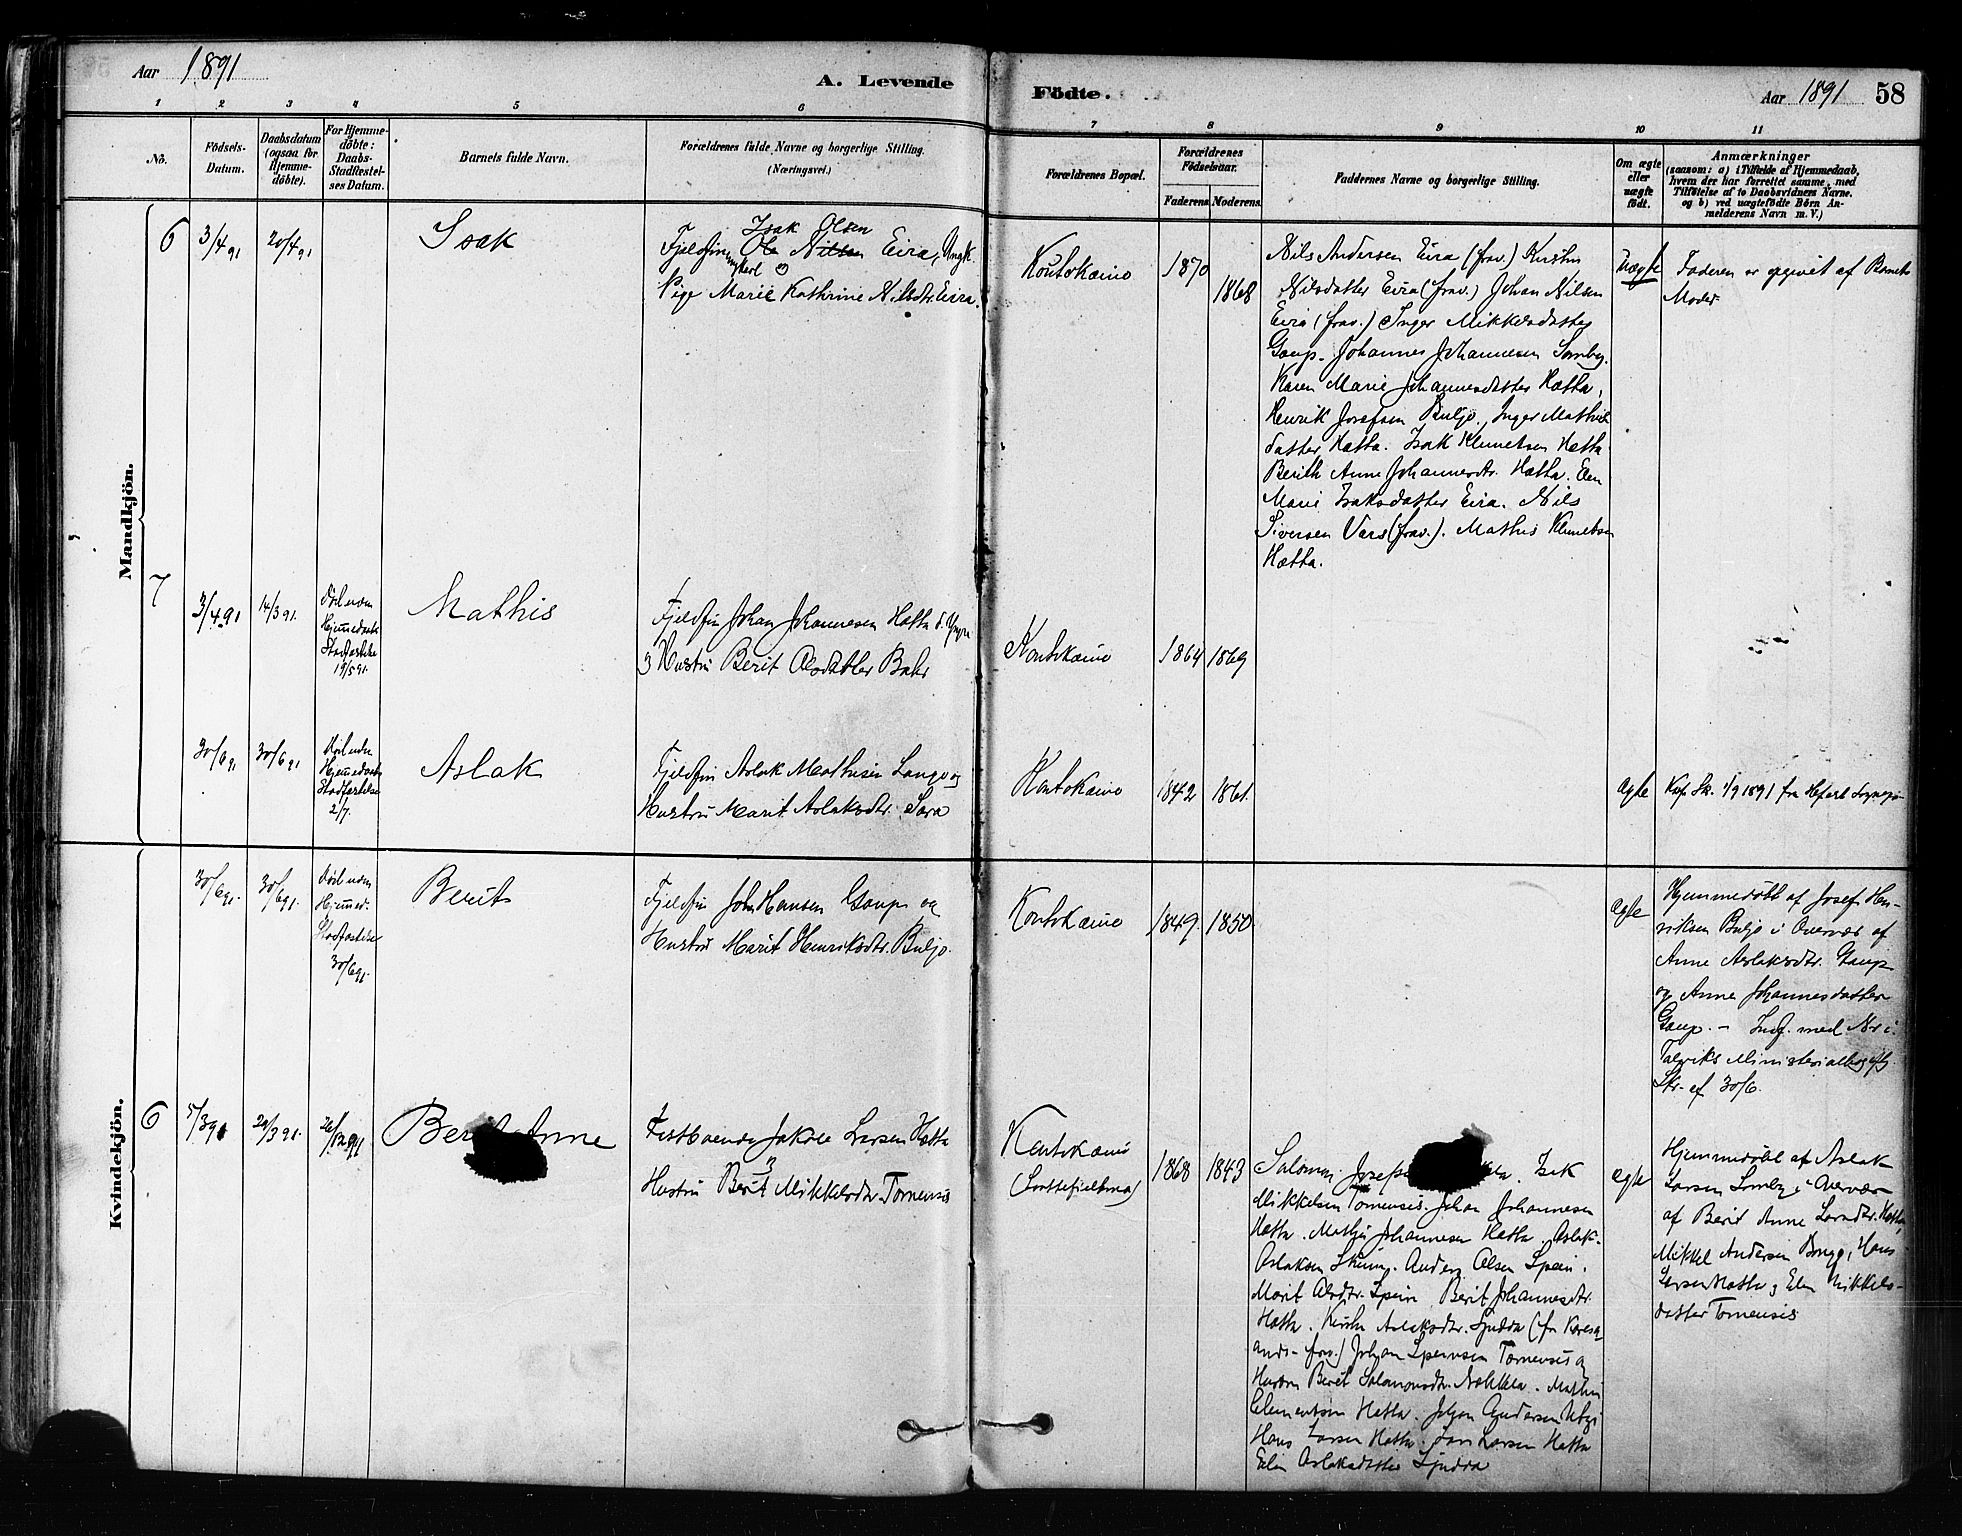 Aar 1891
A. Levende
Födte.
Aar 1891 58
1 2 3 4 5 6 7 8 9 10 11
No.
Födsels-
Datum.
Daabsdatum
(ogsaa for
Hjemme-
döbte).
For Hjemme-
döbte:
Daabs-
Stadfæstel-
ses Datum.
Barnets fulde Navn.
Forældrenes fulde Navne og borgerlige Stilling.
(Næringsvei.)
Forældrenes Bopæl.
Forældrenes
Födselsaar.
Faderens Moderens
Faddernes Navne og borgerlige Stilling.
Om ægte
eller
uægte
födt.
Anmærkninger
(saasom: a) i Tilfælde af Hjemmedaab,
hvem der har forrettet samme, med
Tilföielse af to Daabsvidners Navne,
og b) ved uægtefödte Börn An-
melderens Navn m. V.)
Mandkjön.
6 3/4 91 20/4 91 Isak
Isak Olsen
Fjeldfin Ole Nilsen Eira, Ungk.
Pige Marie Kathrine Nilsdtr. Eira.
Koutokeino 1870 1868
Nils Andersen Eira (frav.) Kirsten
Nilsdatter Eira (frav.) Johan Nilsen
Eira (frav.) Inger Mikkelsdatter
Gaup. Johannes Johannesen Somby.
Karen Marie Johannesdatter Hætta,
Henrik Josefsen Buljo. Inger Mathis
datter Hætta. Isak Klemetsen Hætta
Berith Anne Johannesdtr. Hætta. Elen
Marie Isaksdatter Eira. Nils
Siversen Vars (frav.). Mathis Klemetsen
Hætta.
Uægte
Faderen er opgivet af Barnets
Moder
7 3/4 91 14/3 91.
Hjemmedaab
Stadfæstelse
19/5 91.
Mathis
Fjeldfin Johan Johannesen Hætta d. Yngre
Hustru Berit Olsdatter Bahr
Koutokeino 1864 1869
30/6 91 30/6 91
Hjemmedaab
Stadfæstelse
2/7.
Aslak
Fjeldfin Aslak Mathisen Lango og
Hustru Marit Aslaksdtr. Sara
Koutokeino 1842 1861.
ægte
Sk. 1/9 1891 fra
Kvindekjön.
30/6 91. 30/6 91.
Hjemmed.
Stadfæstelse
30/6 91.
Berit
Fjeldfin John Hansen Gaup og
Hustru Marit Henriksdtr. Buljo.
Koutokeino 1849. 1850
ægte
Hjemmedöbt af Josef Hen-
riksen Buljo i Overvær af
Anne Aslaksdtr. Gaup
og Anne Johannesdatter
Gaup. – Indf. med Nr i
Talviks Ministerialbog
Skr. af 30/6.
6 5/3 91 22/3 91.
Berit Anne
Fastboende Jakob Larsen Hætta
Hustru Berit Mikkelsdtr. Tornensis
Koutokeino
1868 1843
Salomon Josefs
Isak
Mikkelsen Tornensis. Johan Johannesen
Hætta. Mathis Johannesen Hætta. Aslak
Aslaksen Skum. Anders Olsen Spein.
Marit Olsdtr. Spein. Berit Johannesdtr.
Hætta. Kirsten Aslaksdtr. Sjudda (fra Kares-
ando – frav.) Johan Speinsen Tornensis og
Hustru Berit Salomonsdtr. Nækkela. Mathis
Clementsen Hætta. Johan Andersen Utsi
Hans Larsen Hætta. Lars Larsen Hætta
Elen Aslaksdatter Sjudda
ægte
Hjemmedöbt af Aslak
Larsen Somby i Overvær
af Berit Anne Larsdtr. Hætta,
Mikkel Andersen Bongo, Hans
Larsen Hætta og Elen Mikkels-
datter Tornensis